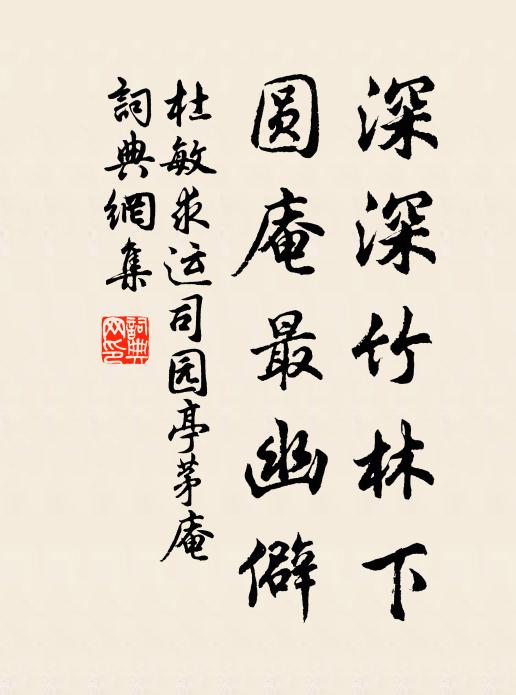 深深竹林下
圆庵最幽僻
杜敏求运司园亭茅庵
詞典網集
詞典网印